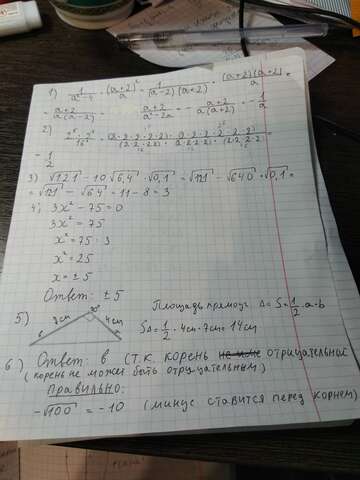 1) 1/(a²-4) · (a+2)²/a = 1/((a-2)(a+2)) · (a+2)(a+2)/a =
= (a+2)/(a(a-2)) = (a+2)/(a²-2a) = - (a+2)/(a(a+2)) = - 1/a
2)
= 1/2
3) √121 - 10√6,4 · √0,1 = √121 - √640 · √0,1 =
= √121 - √64 = 11 - 8 = 3
4) 3x² - 75 = 0
3x² = 75
x² = 75 : 3
x² = 25
x = ± 5
Ответ: ± 5
5.) 7см 90° 4см Площадь прямоуг. Δ = S = 1/2 · a · b
SΔ = 1/2 · 4см · 7см = 14см
6) Ответ: в (т.к. корень отрицательной
(корень не может быть отрицательным)
Правильно:
-√100 = -10 (минус ставится перед корнем)